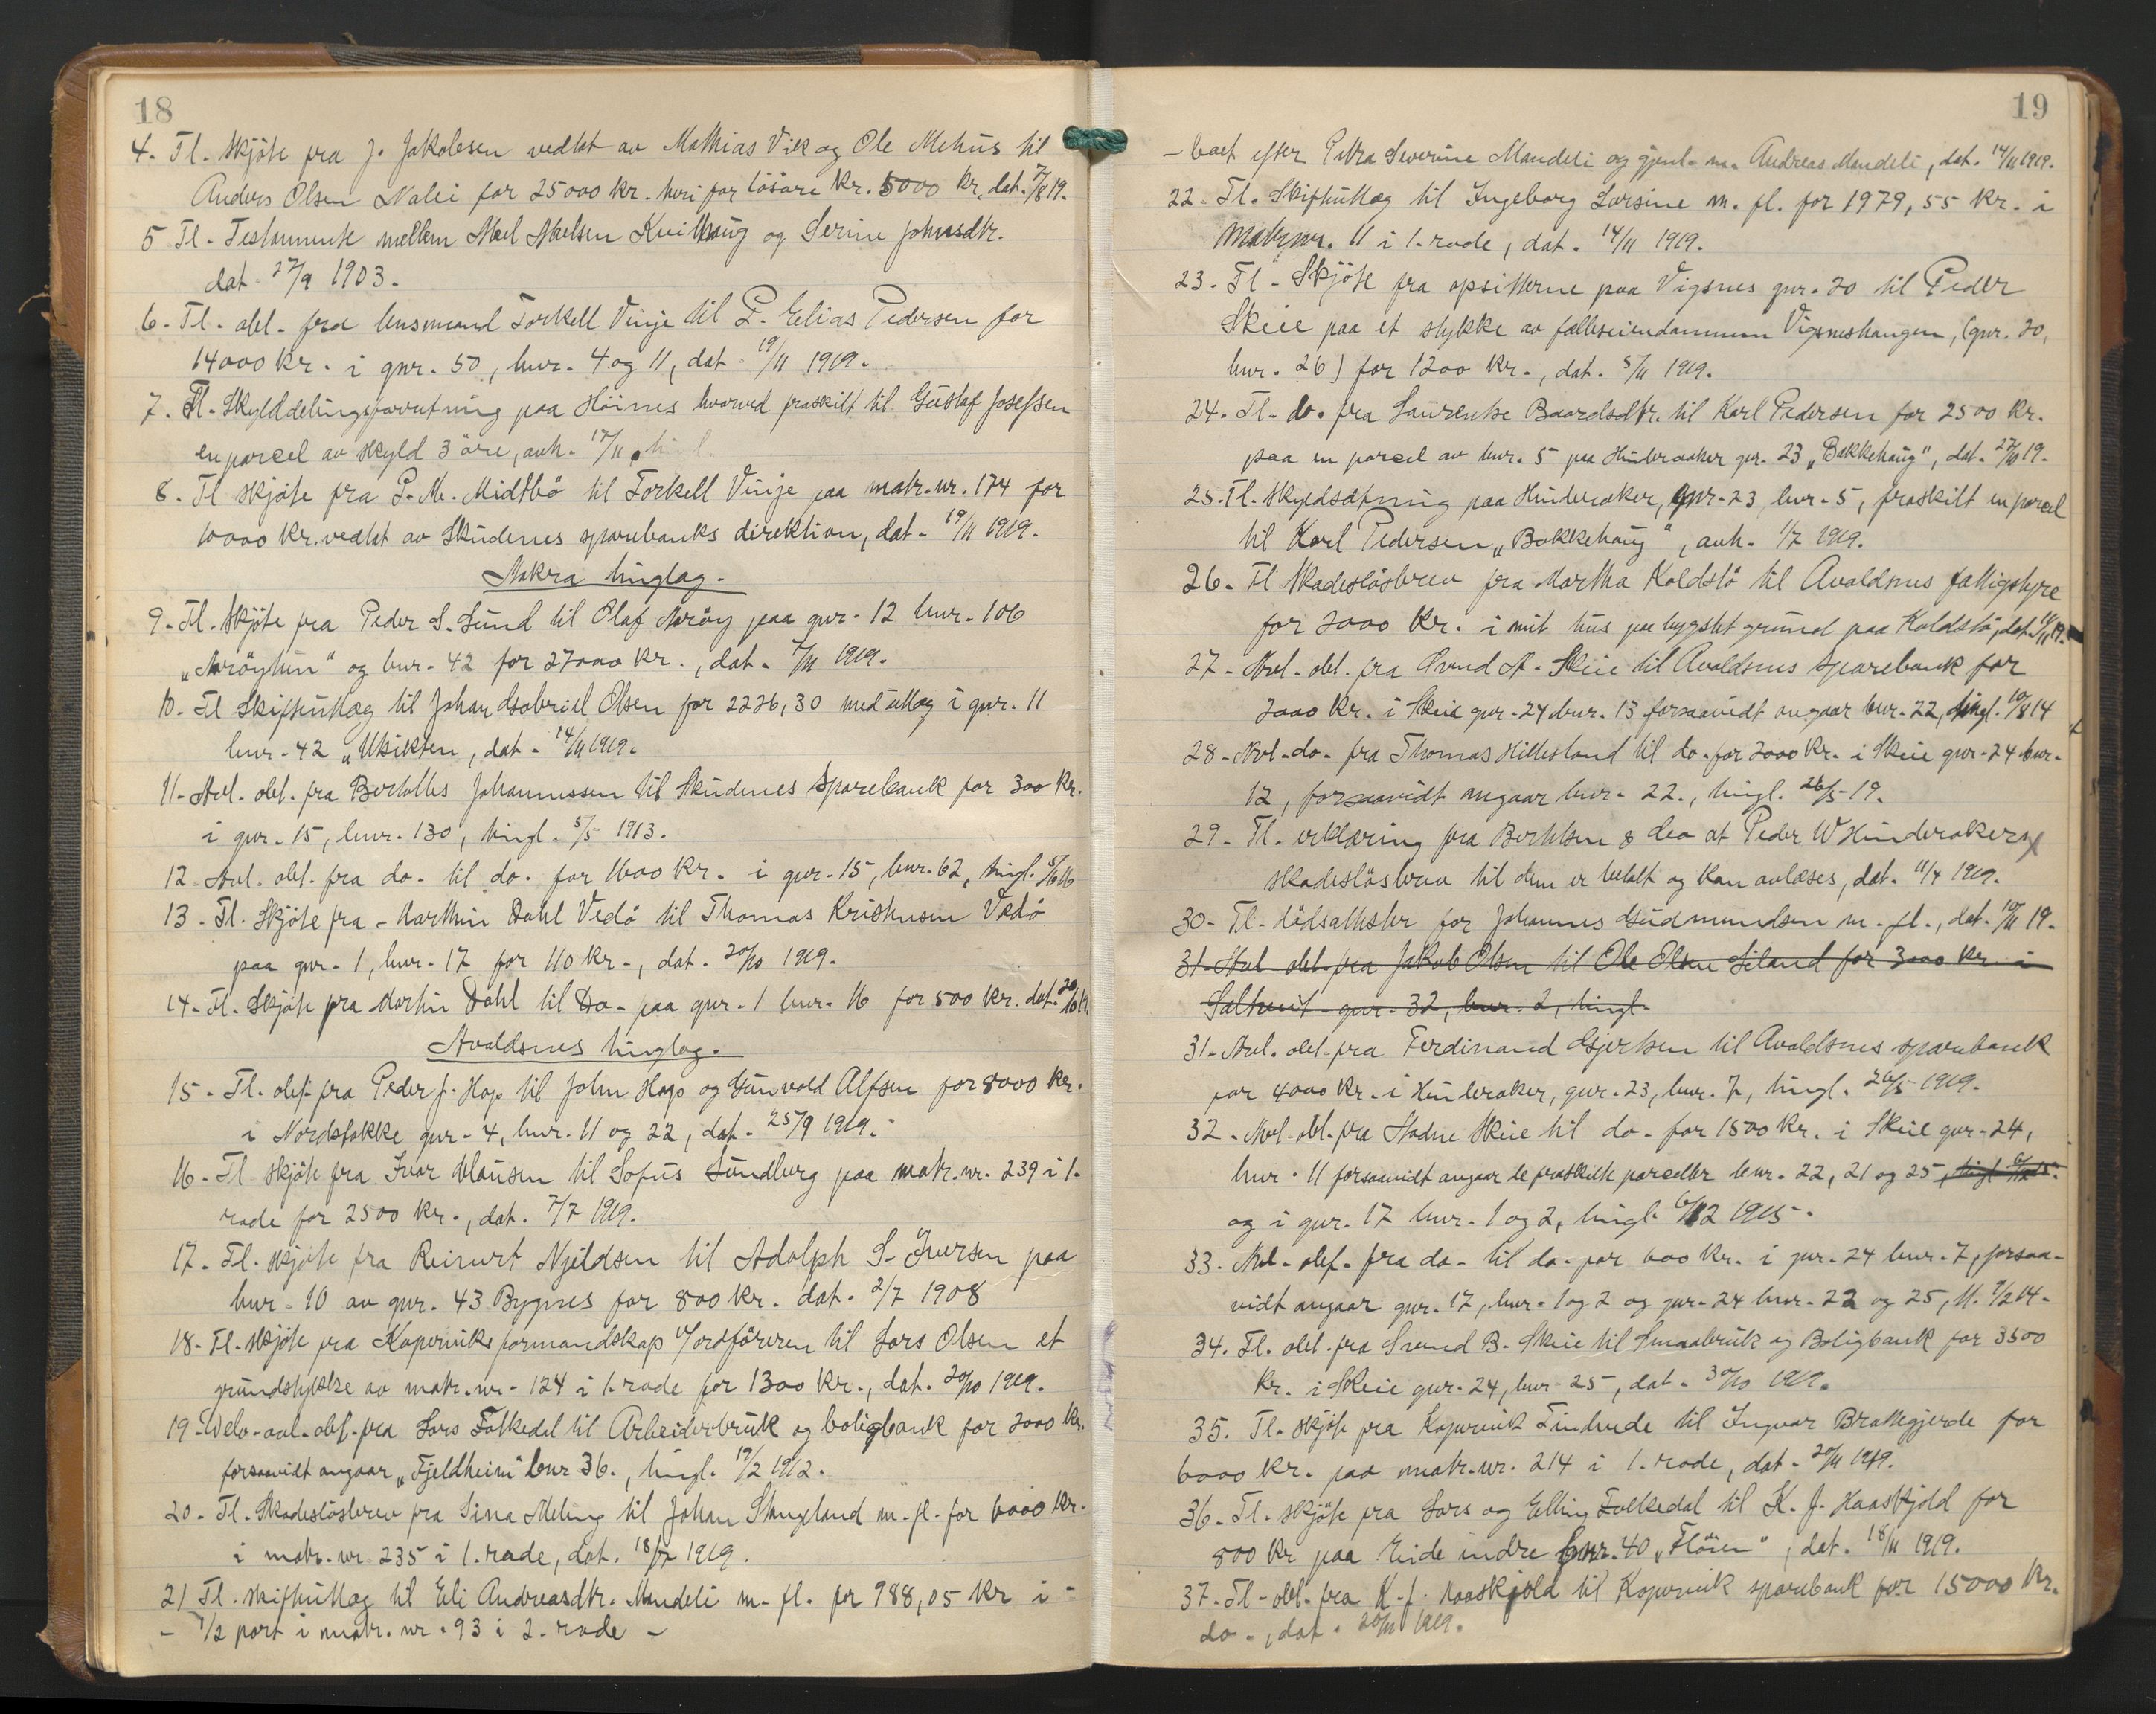 18
4. Tl. skjöte fra J. Jakobsen vedtat av Mathias Vik og Ole Mehus til
Anders Olsen Nalei for 25000 kr. heri for lösöre kr. 5000 kr, dat. 7/8 19.
5 Tl. Testamente mellem Noel Noelsen Kvilhaug og Serine Johnsdtr.
dat 27/9 1903.
6. Tl. obl. fra lensmand Torkell Vinje til P. Elias Pedersen for
14000 kr. i gnr. 50, bnr. 4 og 11, dat. 19/11 1919.
7. Tl. Skylddelingsforretning paa Höines hvorved fraskilt til Gustaf Josefsen
en parcel av skyld 3 öre, avh. 17/11
8. Tl skjöte fra P. M. Midtbö til Torkell Vinje paa matr. nr. 174 for
10000 kr. vedtat av Skudenes sparebanks direktion, dat. 19/11 1919.
Aakra tinglag.
9. Tl. skjöte fra Peder S. Sund til Olaf Aaröy paa gnr. 12 bnr. 106
„Aaröytun“ og bnr. 42 for 27000 kr., dat. 7/11 1919.
10. Tl Skifteutlæg til Johan Gabriel Olsen for 2226,30 med utlæg i gnr. 11
bnr. 42 „Utsikten, dat. 14/11 1919.
11. Avl. obl. fra Bertolles Johannessen til Skudenes Sparebank for 300 kr.
i gnr. 15, bnr. 130, tingl. 5/5 1913.
12 Avl. obl. fra do. til do. for 1600 kr. i gnr. 15, bnr. 62, tingl. 5/6 16
13. Tl. Skjöte fra Marthin Dahl Vedö til Thomas Kristensen Vedö
paa gnr. 1, bnr. 17 for 110 kr., dat. 20/10 1919.
14. Tl. Skjöte fra Martin Dahl til Do. paa gnr. 1 bnr. 16 for 500 kr. dat. 20/10 19
Avaldsnes tinglag.
15. Tl. obl. fra Peder J. Hop til John Hop og Gunvald Alfsen for 8000 kr.
i Nordstokke gnr. 4, bnr. 11 og 22, dat. 25/9 1919.
16. Tl. skjöte fra Ivar Clausen til Sofus Sundberg paa matr. nr. 239 i 1.
rode for 2500 kr., dat. 7/7 1919.
17. Tl. skjöte fra Reinert Njeldsen til Adolph S. Iversen paa
bnr. 10 av gnr. 43 Bygnes for 800 kr. dat. 2/7 1908
18. Tl. skjöte fra Koperviks formandskap v/ordföreren til Lars Olsen et
grundstykke av matr. nr. 124 i 1. rode for 1300 kr., dat. 20/10 1919.
19. Delv. avl. obl. fra Lars Folkedal til Arbeiderbruk og boligbank for 2000 kr.
forsaavidt angaar „Fjeldheim“ bnr 36., tingl. 19/2 1912.
20. Tl. Skadeslösbrev fra Sina Meling til Johan Stangeland m. fl. for 6000 kr.
i matr. nr 235 i 1. rode, dat. 18/7 1919.
21 Tl. skifteutlæg til Eli Andreasdtr. Mandeli m. fl. for 988,05 kr i -
- 1/2 part i matr. nr. 93 i 2. rode -
19
- boet efter Petra Severine Mandeli og gjenl. m. Andreas Mandeli, dat. 14/11 1919.
22. Tl. Skifteutlæg til Ingeborg Larsine m. fl. for 1979,55 kr. i
Matr. nr. 11 i 1. rode, dat. 14/11 1919.
23. Tl. Skjöte fra opsitterne paa Vigsnes gnr. 20 til Peder
Skeie paa et stykke av fælleseiendommen Vigsneshaugen, (gnr. 20,
bnr. 26) for 1200 kr., dat. 5/11 1919.
24. Tl. do. fra Laurentse Baardsdtr. til Karl Pedersen for 2500 kr.
paa en parcel av bnr. 5 paa Hinderaaker gnr. 23 „Bakkehaug“, dat. 27/10 19.
25. Tl. skyldsætning paa Hinderaker, gnr. 23 bnr. 5, fraskilt en parcel
til Karl Pedersen „Bakkehaug“, avh. 1/7 1919.
26. Tl Skadeslösbrev fra Martha Koldstö til Avaldsnes fattigstyre
for 2000 kr. i mit hus paa bygslet grund paa Koldstö, dat. 14/11 19.
27. Avl. obl. fra Svend A. Skeie til Avaldsnes sparebank for
2000 kr. i Skeie gnr. 24 bnr. 13 forsaavidt angaar bnr. 22, tingl. 10/8 14
28. Avl. do. fra Thomas Hillesland til do. for 2000 kr. i Skeie gnr. 24 bnr.
12, forsaavidt angaar bnr. 22., tingl. 26/5 19.
29. Tl. erklæring fra Berthsen & Leo at Peder W Hinderakers
skadeslösbrev til dem er betalt og kan avlæses, dat. 11/4 1919.
30. Tl. dödsattester for Johannes Gudmundsen m. fl., dat. 10/11 19.
31. Avl obl. fra Jakob Olsen til Ole Olsen Liland for 3000 kr i
Saltveit gnr. 32, bnr. 2, tingl.
31. Avl. obl. fra Ferdinand Gjertsen til Avaldsnes sparebank
for 4000 kr. i Hinderaker, gnr. 23, bnr. 7, tingl. 26/5 1919.
32. Avl. obl. fra Sadne Skeie til do. for 1500 kr. i Skeie gnr. 24,
bnr. 11 forsaavidt angaar de fraskilte parceller bnr. 22, 21 og 25, tingl 6/12 15.
og i gnr. 17 bnr. 1 og 2, tingl. 6/12 1915.
33. Avl. obl. fra do. til do. for 600 kr. i gnr. 24 bnr. 7, forsaa-
vidt angaar gnr. 17, bnr. 1 og 2 og gnr. 24 bnr. 22 og 25, tl. 9/2 14.
34. Tl. obl. fra Svend B. Skeie til Smaabruk og Boligbank for 3500
kr. i Skeie gnr. 24, bnr 25, dat. 30/10 1919.
35. Tl. skjöte fra Kopervik Tinhvede til Ingvar Brattegjerde for
6000 kr. paa matr. nr. 214 i 1. rode, dat. 20/11 1919.
36. Tl. skjöte fra Lars og Elling Folkedal til K. J. Haaskjold for
800 kr paa Eide indre bnr. 40 „Flöien“, dat. 18/11 1919.
37. Tl. obl. fra K. J. Haaskjold til Kopervik sparebank for 15000 kr.
do., dat. 20/11 1919.